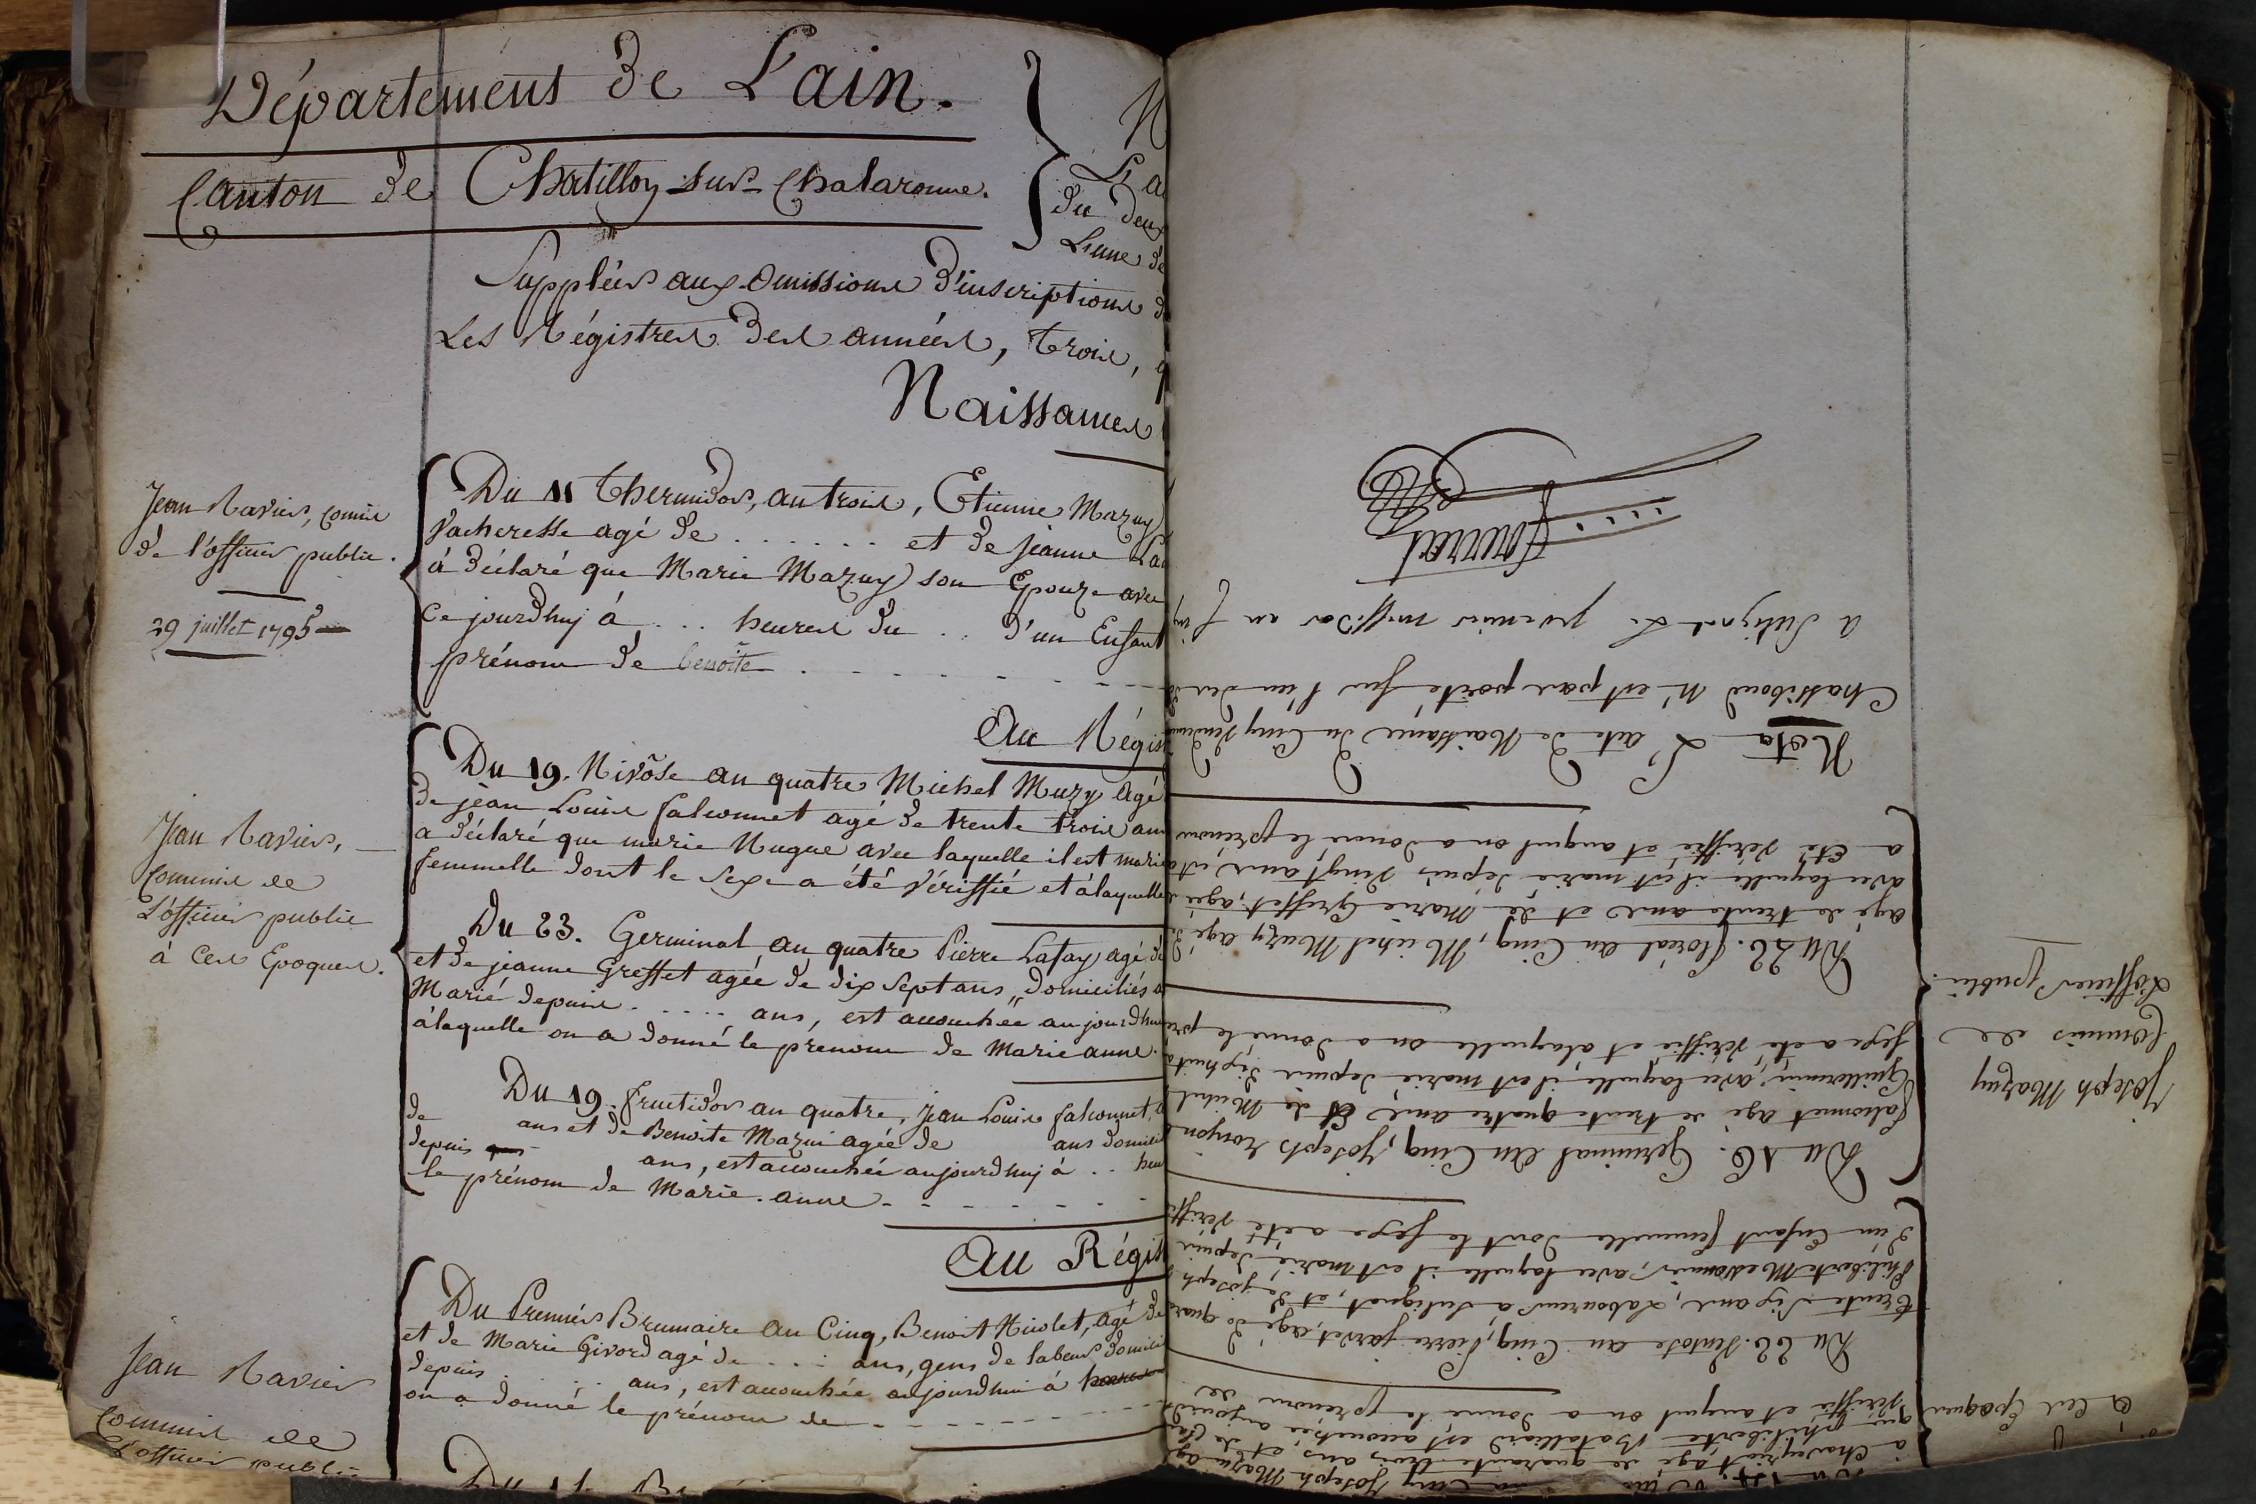 Département de L'ain.
Canton de Chatillon sur Chalaronne.
du deux
L'une de
Suppléer aux omissions d'inscriptions
Les Régistres des années, trois,
Naissances
Jean Ravier, commis
de l'officier public.
29 juillet 1795
Du 11 thermidor, an trois, Etienne Mazuy
Vacheresse agé de . . . . . . . et de jeanne
à déclaré que Marie Mazuy son Epouze avec
Ce jourd'huy à . . . heures du . . d'un Enfant
prénom de benoite
Au Régis
Jean Ravier,
Commis de
L'officier public
à Ces Epoques.
Du 19. Nivôse an quatre Michel Muzy Agé
de jean Louis falconnet agé de trente trois ans
a déclaré que marie Nugue avec laquelle il est marié
femmelle dont le sexe a été vériffié et à laquelle
Du 23. Germinal an quatre Pierre Lafay agé de
et de jeanne Greffet agée de dix sept ans, domiciliés a
Marié depuis . . . . . ans, est accouchée aujourdhuy
à laquelle on a donné le prénom de Marie anne.
Du 19 fructidor an quatre, jean Louis falconnet,
de ans et de Benoite Mazui agée de ans domicil
depuis ans, est accouchée aujourdhuj à . . heu
le prénom de Marie . anne
Au Régist
Jean Ravier
Commis de
L'officier public
Du Premier Brumaire an Cinq, Benoit Nicolet, agé de
et de Marie Givord agé de . . . ans, gens de labeur domicil
depuis . . . ans, est accouchée aujourdhui à
on a donné le prénom de
Nota L'acte de Naissance du Cinq
Chassiboud n'est pas porté sur l'un des
a Sulignat le premier messidor an
Du 22. floréal an Cinq, Michel Muzy agé
agé de trente ans et de Marie Greffet, agée
avec laquelle il est marié depuis vingt ans,
a été vériffié et auquel on a donné le prénom
Joseph Mazuy
Commis de
L'officier public.
Du 16. Germinal an Cinq, Joseph
falconnet agé de trente quatre ans et de Michel
Guillermin, avec laquelle il est marié depuis
sexe a été vériffié et a laquelle on a donné le
Du 22. Ventose an Cinq, Pierre jarret, agé
trente six ans, Laboureur à Sulignat, et de joseph
Philiberte Mesonnier, avec laquelle il est marié, depuis
d'un Enfant femmelle dont le sexe a été vériffié
à Ces Epoques
an Cinq Joseph Mazui agé
à Chaveyriat, agé de quarante trois ans, et de
philiberte Batalliard est accouchée aujourd
vériffié et auquel on a donné le prénom de